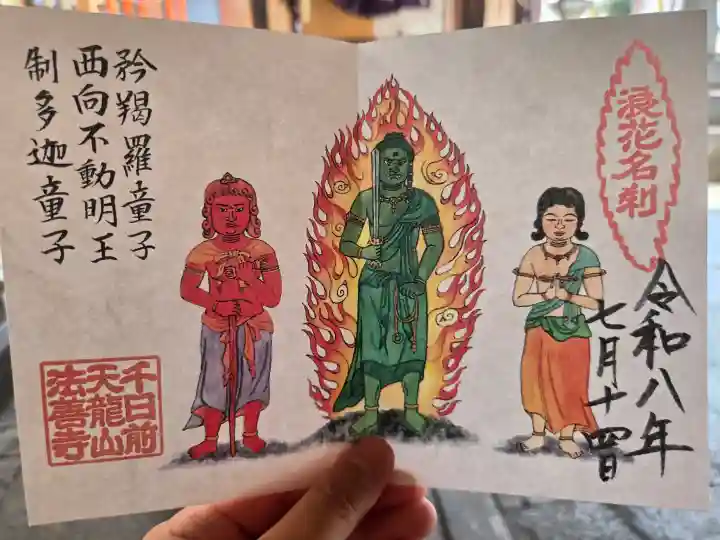 浪花名刹
令和八年
七月十四日
矜羯羅童子
西向不動明王
制多迦童子
千日前
天龍山
法善寺